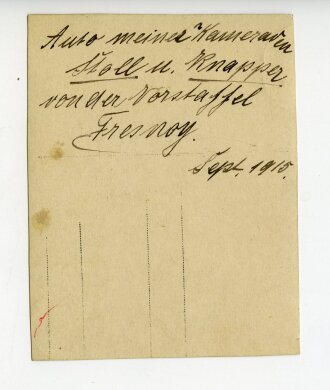 Auto meines Kameraden
Stoll u. Knapper
von der Vorstaffel
Fresnoy.
Sept. 1915.